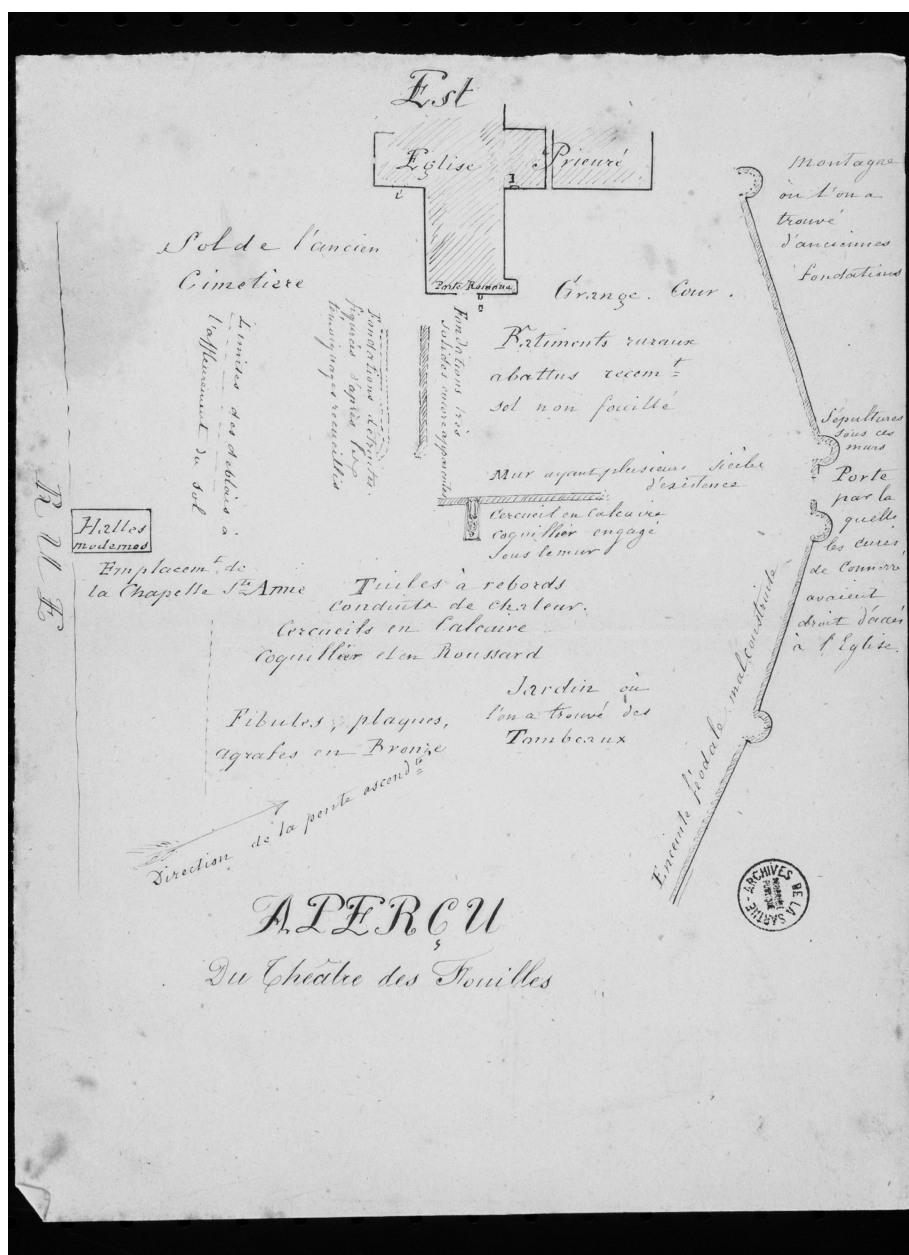 Est
Eglise
Prieuré
Porte Romane
Montagne
où l'on a
trouvé
d'anciennes
fondations
Sol de l'ancien
Cimetière
Grange. Cour.
Limites des déblais à
l'affleurement du sol
Fondations détruites.
figurées d'après les
témoignages recueillis
Fondations très
solides encore apparentes
Batiments ruraux
abattus récemt
sol non fouillé
Mur ayant plusieurs siècles
d'existence
Cercueil en Calcaire
coquillier engagé
sous le mur
Sépultures
sous ces
murs
Porte
par la
quelle
les curés
de Connerré
avaient
droit d'accès
à l'Eglise.
RUE
Halles
modernes
Emplacemt. de
la Chapelle Ste Anne
Tuiles à rebords
conduits de chaleur.
Cercueils en Calcaire
Coquillier et en Roussard
Jardin où
l'on a trouvé des
Tombeaux
Fibules, plaques,
agrafes en Bronze
Direction de la pente ascendte
Enceinte féodale mal construite
ARCHIVES DE LA SARTHE
APERÇU
Du Théâtre des Fouilles